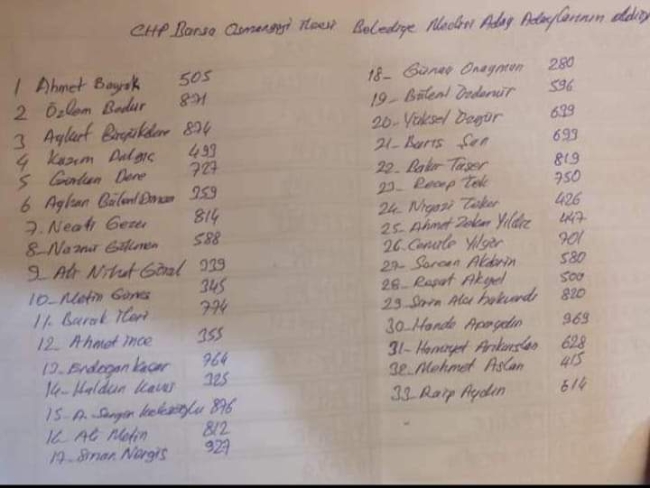 CHP Bursa Osmangazi İlçesi Belediye Meclisi Aday Adaylarının aldığı
1 Ahmet Bayrak 505
2 Özlem Bodur 871
3 Aykut 874
4 Kazım Dalgıç 493
5 Gürkan Dere 727
6 Ayhan Bülent Duman 959
7- Necati Gezer 814
8- Naznur Gökmen 588
9- Ali Nihat Güzel 939
10- Metin Güneş 345
11- Burak İleri 774
12- Ahmet İnce 355
13- Erdoğan Kaçar 764
14- Haldun Kavas 325
15- A. Sergen 876
16- Ali Metin 812
17- Sinan Nergis 927
18- Günay Onayman 280
19- Bülent Özdemir 596
20- Yüksel Özgür 699
21- Barış Şan 699
22- Bakır Taşer 819
23- Recep Tek 750
24- Niyazi Toker 426
25- Ahmet Zekan Yıldız 447
26- Cemile Yılgör 701
27- Sercan Akdorin 580
28- Reşat Akyel 500
29- 820
30- Hande Apaydın 969
31- Hamiyet Arıkarslan 628
32- Mehmet Aslan 415
33- Raip Aydın 614